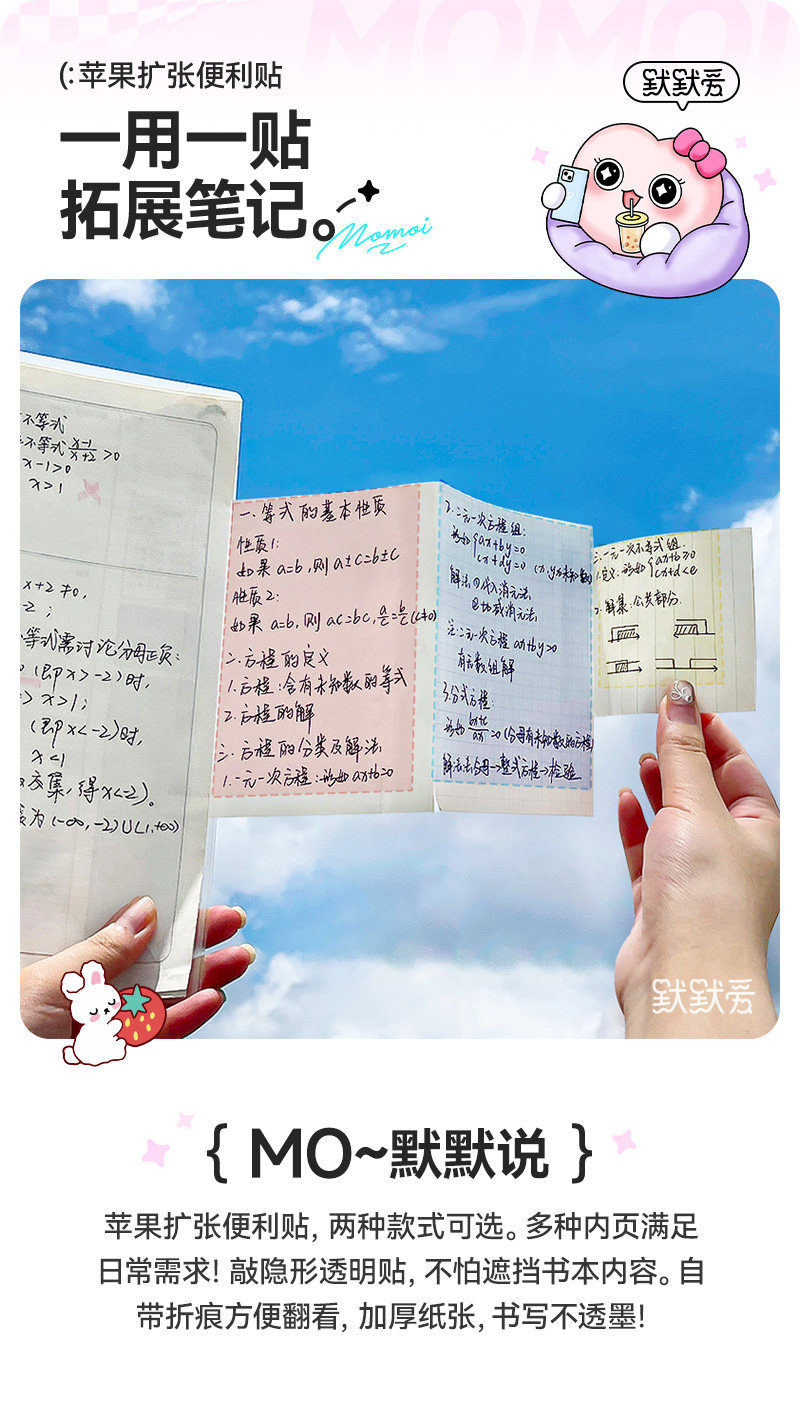 MOMOI
(:苹果扩张便利贴
默默爱
一用一贴
拓展笔记。
Momoi
不等式
不等式 x-1/x+2 >0
x-1>0
x>1
x+2≠0,
-2;
等式需讨论分母正负:
(即x>-2)时,
x>1;
(即x<-2)时,
x<1
交集,得x<-2)。
为(-∞,-2)∪(1,+∞)
一、等式的基本性质
性质1:
如果a=b,则a±c=b±c
性质2:
如果a=b,则ac=bc,a/c=b/c(c≠0)
二.方程的定义
1.方程:含有未知数的等式
2.方程的解
三.方程的分类及解法
1.一元一次方程:形如ax+b=0
2.二元一次方程组:
形如{ax+by=0
cx+dy=0 (x,y为未知数)
解法:①代入消元法
②加减消元法
注:二元一次方程ax+by>0
有无数组解
3.分式方程:
=0(分母有未知数的方程)
解法:去分母→整式方程→检验
三.一元一次不等式组:
1.定义:形如{ax+b≥0
cx+d<e
2.解集:公共部分
默默爱
{ MO~默默说 }
苹果扩张便利贴,两种款式可选。多种内页满足
日常需求!敲隐形透明贴,不怕遮挡书本内容。自
带折痕方便翻看,加厚纸张,书写不透墨!